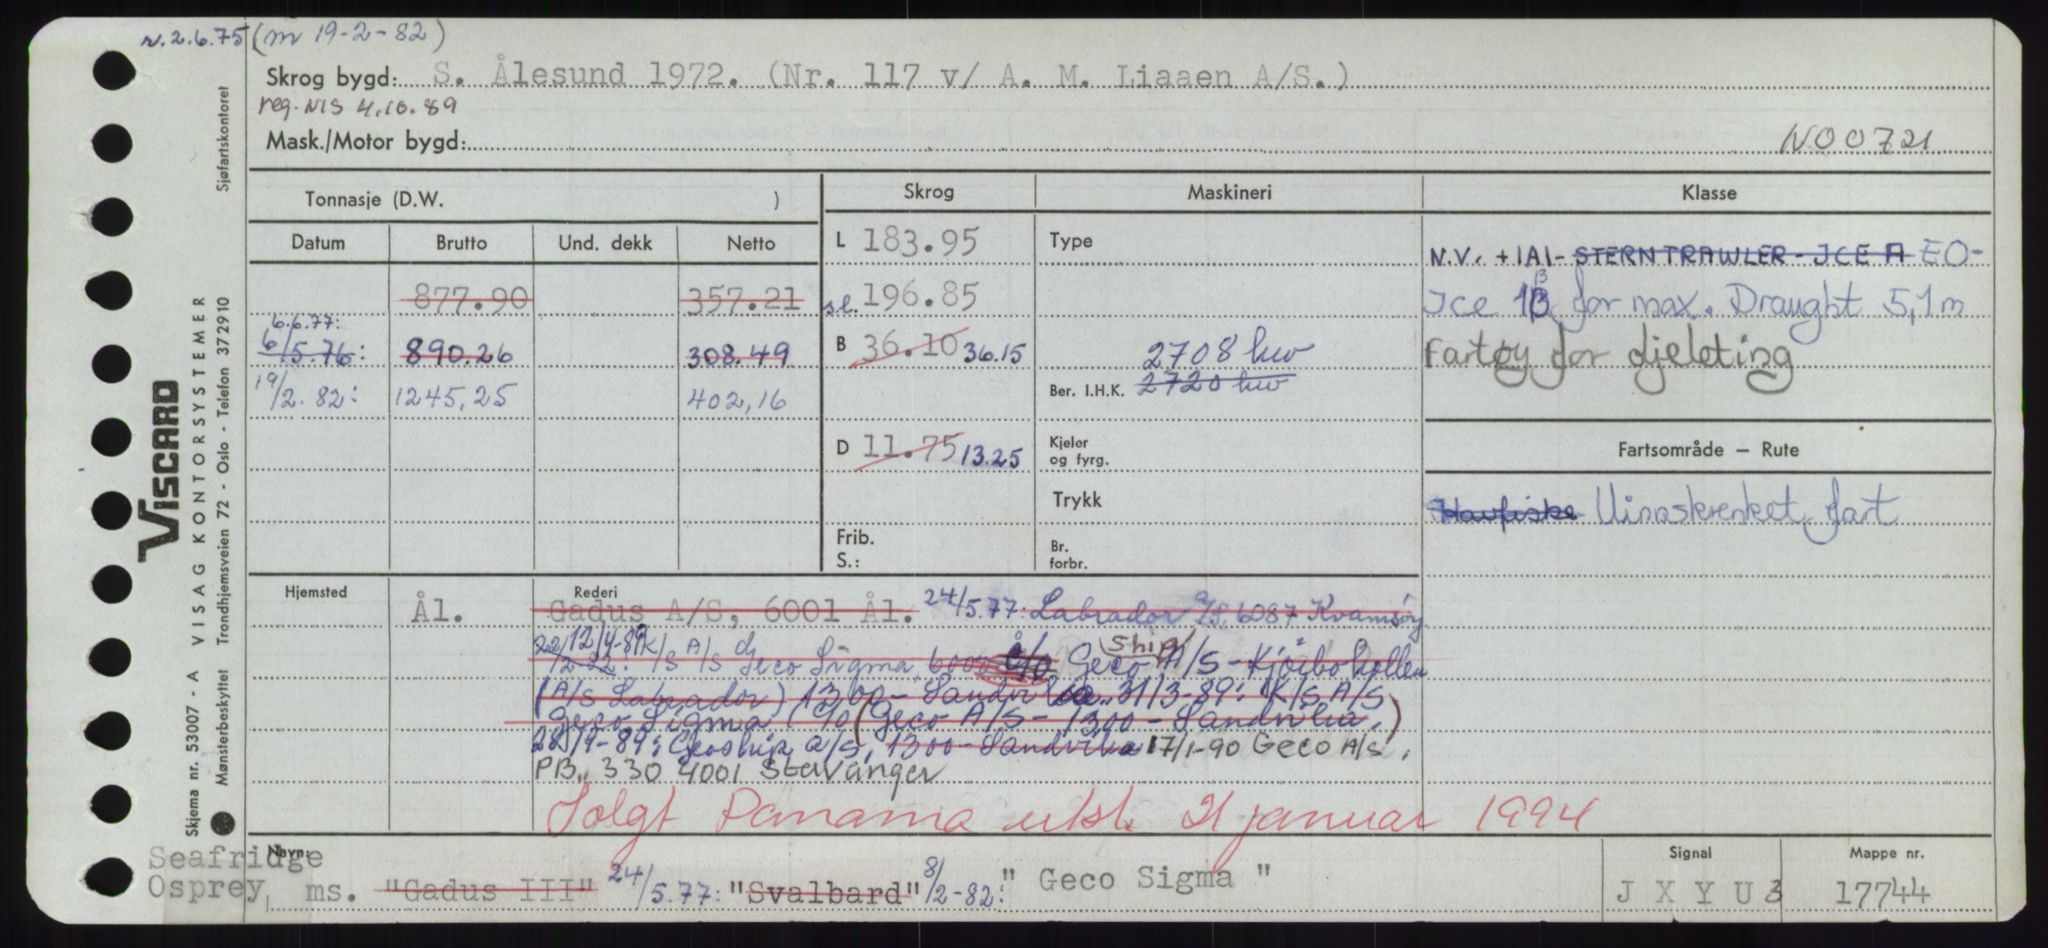 n. 2.6.75 (m 19-2-82)
Skrog bygd: S. Ålesund 1972. (Nr. 117 v/ A. M. Liaaen A/S.)
reg. NIS 4.10.89
Mask./Motor bygd: NOO721
Tonnasje (D.W. ) Skrog Maskineri Klasse
Datum Brutto Und. dekk Netto
L 183.95 Type N.V. +1A1- STERNTRAWLER - ICE A EO-
877.90 357.21 sl. 196.85 Ice 1B for max. Draught 5,1 m
6.6.77:
6/5.76: 890.26 308.49 B 36.10 36.15 2708 hw Fartøy for djeleting
19/2.82: 1245,25 402,16 Ber. I.H.K. 2720 hw
D 11.75 13.25 Kjeler og fyrg. Fartsområde — Rute
Trykk Havfiske Uinnskrenket fart
Frib.
S.:
Br. forbr.
Hjemsted Ål. Rederi Gadus A/S, 6001 Ål. 24/5.77: Labrador A/S, 6087 Kvamsøy
22/2-82: 12/4-89 K/S A/S Geco Sigma, 6000 Å/O Geco Ship A/S - Kjørbokollen
(A/S Labrador) 1300 - Sandvika. 31/3-89: K/S A/S
Geco Sigma c/o (Geco A/S - 1300 - Sandvika.)
28/9-89: Geoship a/s, 1300 - Sandvika 17/1-90 Geco A/s,
PB. 330 4001 Stavanger
Solgt Panama utsl. 21 januar 1994
Navn: Signal Mappe nr.
Seafridge
Osprey, ms. "Gadus III" 24/5.77: "Svalbard" 8/2-82: "Geco Sigma" J X Y U 3 17744
VISCARD
Skjema nr. 53007 - A VISAG KONTORSYSTEMER
Mønsterbeskyttet Trondhjemsveien 72 - Oslo - Telefon 372910 Sjøfartskontoret